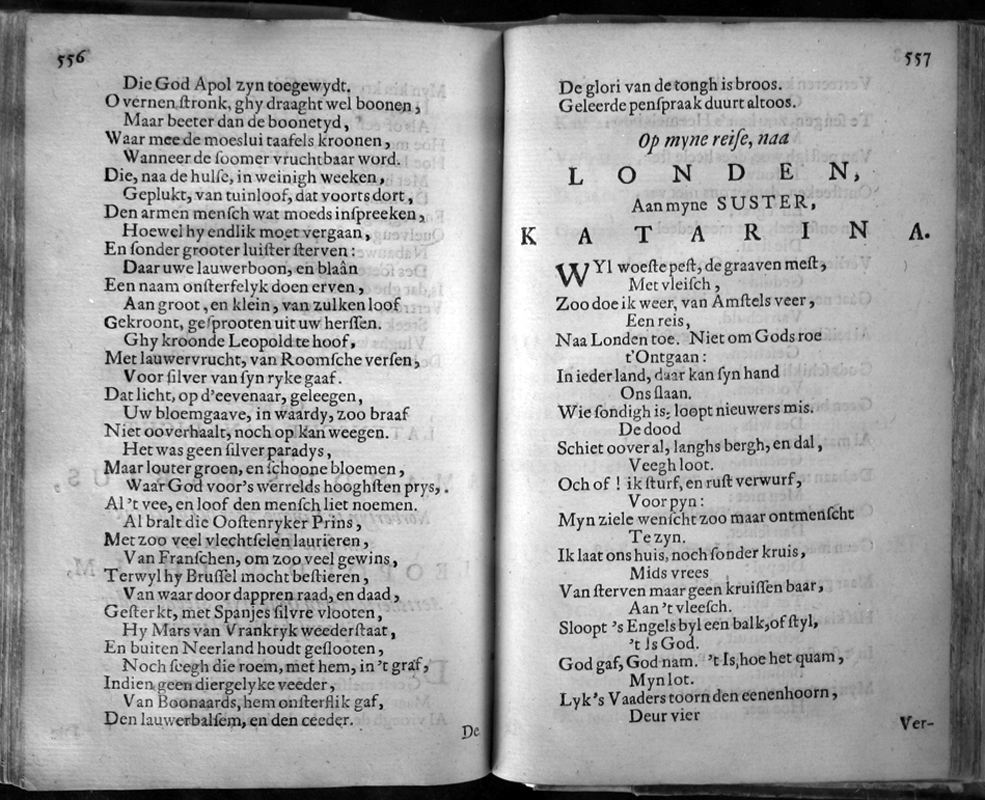 556
Die God Apol zyn toegewydt.
O vernen ſtronk, ghy draaght wel boonen,
Maar beeter dan de boonetyd,
Waar mee de moeslui taafels kroonen,
Wanneer de ſoomer vruchtbaar word.
Die, naa de hulſe, in weinigh weeken,
Geplukt, van tuinloof, dat voorts dort,
Den armen menſch wat moeds inſpreeken,
Hoewel hy endlik moet vergaan,
En ſonder grooter luiſter ſterven:
Daar uwe lauwerboon, en blaân
Een naam onſterfelyk doen erven,
Aan groot, en klein, van zulken loof
Gekroont, geſprooten uit uw herſſen.
Ghy kroonde Leopold te hoof,
Met lauwervrucht, van Roomſche verſen,
Voor ſilver van ſyn ryke gaaf.
Dat licht, op d'eevenaar, geleegen,
Uw bloemgaave, in waardy, zoo braaf
Niet ooverhaalt, noch op kan weegen.
Het was geen ſilver paradys,
Maar louter groen, en ſchoone bloemen,
Waar God voor's werrelds hooghſten prys,.
Al 't vee, en loof den menſch liet noemen.
Al bralt die Ooſtenryker Prins,
Met zoo veel vlechtſelen laurieren,
Van Franſchen, om zoo veel gewins,
Terwyl hy Bruſſel mocht beſtieren,
Van waar door dappren raad, en daad,
Geſterkt, met Spanjes ſilvre vlooten,
Hy Mars van Vrankryk weederſtaat,
En buiten Neerland houdt geſlooten,
Noch ſeegh die roem, met hem, in 't graf,
Indien geen diergelyke veeder,
Van Boonaards, hem onſterflik gaf,
Den lauwerbalſem, en den ceeder.
De
557
De glori van de tongh is broos.
Geleerde penſpraak duurt altoos.
Op myne reiſe, naa
LONDEN,
Aan myne SUSTER,
KATARINA.
WYl woeſte peſt, de graaven meſt,
Met vleiſch,
Zoo doe ik weer, van Amſtels veer,
Een reis,
Naa Londen toe. Niet om Gods roe
t'Ontgaan:
In ieder land, daar kan ſyn hand
Ons ſlaan.
Wie ſondigh is, loopt nieuwers mis.
De dood
Schiet oover al, langhs bergh, en dal,
Veegh loot.
Och of! ik ſturf, en ruſt verwurf,
Voor pyn:
Myn ziele wenſcht zoo maar ontmenſcht
Te zyn.
Ik laat ons huis, noch ſonder kruis,
Mids vrees
Van ſterven maar geen kruiſſen baar,
Aan 't vleeſch.
Sloopt 's Engels byl een balk, of ſtyl,
't Is God.
God gaf, God nam. 't Is, hoe het quam,
Myn lot.
Lyk's Vaaders toorn den eenenhoorn,
Deur vier
Ver-